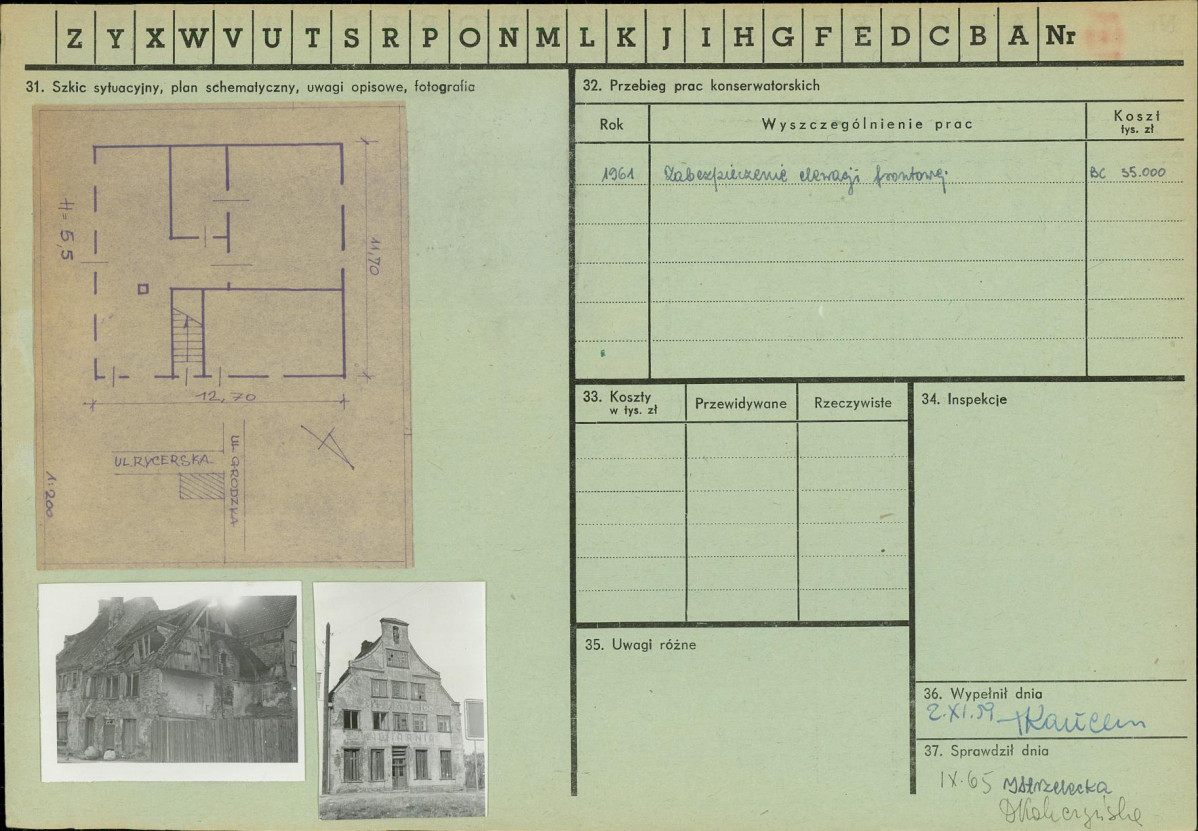 Z Y X W V U T S R P O N M L K J I H G F E D C B A Nr
31. Szkic sytuacyjny, plan schematyczny, uwagi opisowe, fotografia
H = 5,5
11,70
12,70
UL. RYCERSKA
UL GRODZKA
1:200
32. Przebieg prac konserwatorskich
Rok
Wyszczególnienie prac
Koszt
tys. zł
1961 Zabezpieczenie elewacji frontowej. BC 35.000
33. Koszty
w tys. zł
Przewidywane
Rzeczywiste
34. Inspekcje
35. Uwagi różne
36. Wypełnił dnia
2.XI.59
37. Sprawdził dnia
IX.65 Strzelecka